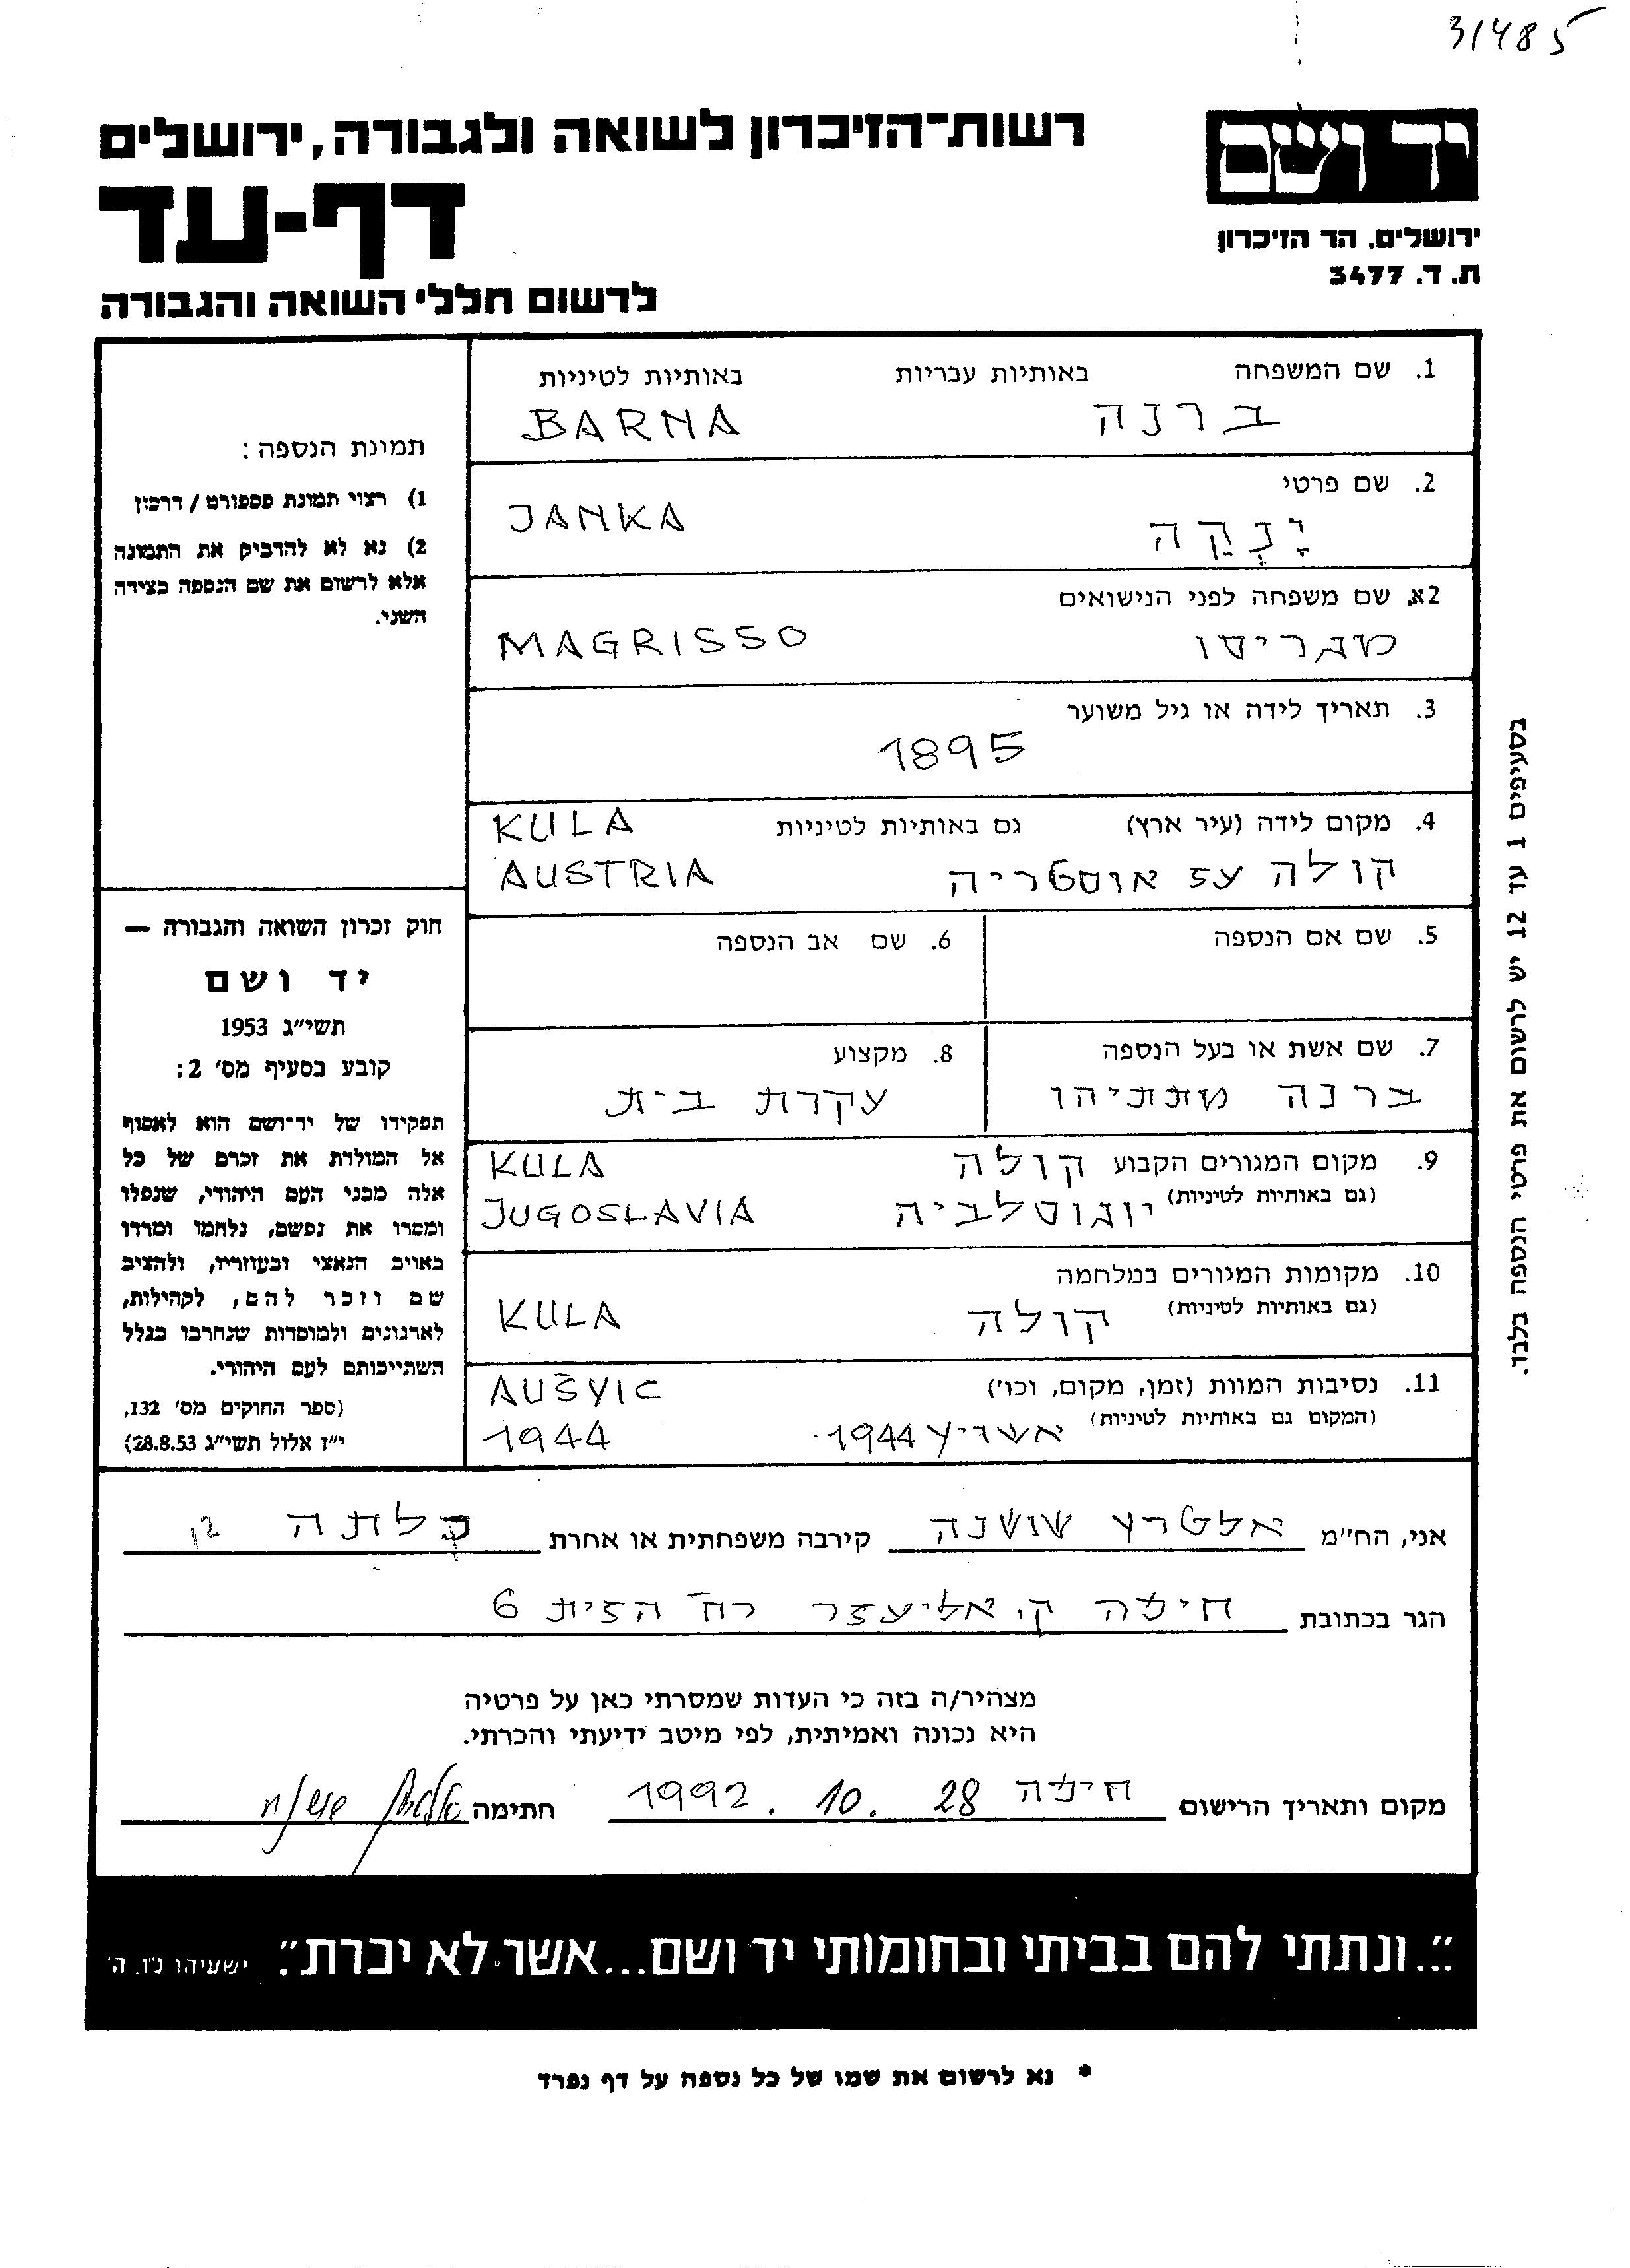 31485
יד ושם
ירושלים. הר הזיכרון
ת. ד. 3477
רשות־הזיכרון לשואה ולגבורה, ירושלים
דף-עד
לרשום חללי השואה והגבורה
1. שם המשפחה באותיות עבריות באותיות לטיניות
ברנה BARNA
2. שם פרטי
יָנְקַה JANKA
2א. שם משפחה לפני הנישואים
מגריסו MAGRISSO
3. תאריך לידה או גיל משוער
1895
4. מקום לידה (עיר ארץ) גם באותיות לטיניות KULA
קולה אוסטריה AUSTRIA
5. שם אם הנספה 6. שם אב הנספה
7. שם אשת או בעל הנספה 8. מקצוע
ברנה מתתיהו עקרת בית
9. מקום המגורים הקבוע קולה KULA
(גם באותיות לטיניות) יוגוסלביה JUGOSLAVIA
10. מקומות המגורים במלחמה
(גם באותיות לטיניות) קולה KULA
11. נסיבות המוות (זמן, מקום, וכו') AUŠVIC
(המקום גם באותיות לטיניות) 1944 1944
תמונת הנספה:
1) רצוי תמונת פספורט / דרכון
2) נא לא להדביק את התמונה
אלא לרשום את שם הנספה בצידה
השני.
חוק זכרון השואה והגבורה —
יד ושם
תשי"ג 1953
קובע בסעיף מס' 2:
תפקידו של יד־ושם הוא לאסוף
אל המולדת את זכרם של כל
אלה מבני העם היהודי, שנפלו
ומסרו את נפשם, נלחמו ומרדו
באויב הנאצי ובעוזריו, ולהציב
שם וזכר להם, לקהילות,
לארגונים ולמוסדות שנחרבו בגלל
השתייכותם לעם היהודי.
(ספר החוקים מס' 132,
י"ז אלול תשי"ג 28.8.53)
בסעיפים 1 עד 12 יש לרשום את פרטי הנספה בלבד.
אני, הח"מ אלטרץ שושנה קירבה משפחתית או אחרת כלתה
הגר בכתובת חיפה ק. אליעזר רח' הזית 6
מצהיר/ה בזה כי העדות שמסרתי כאן על פרטיה
היא נכונה ואמיתית, לפי מיטב ידיעתי והכרתי.
מקום ותאריך הרישום חיפה 28 .10 .1992 חתימה
"...ונתתי להם בביתי ובחומותי יד ושם...אשר לא יכרת". ישעיהו נ"ו, ה'
* נא לרשום את שמו של כל נספה על דף נפרד